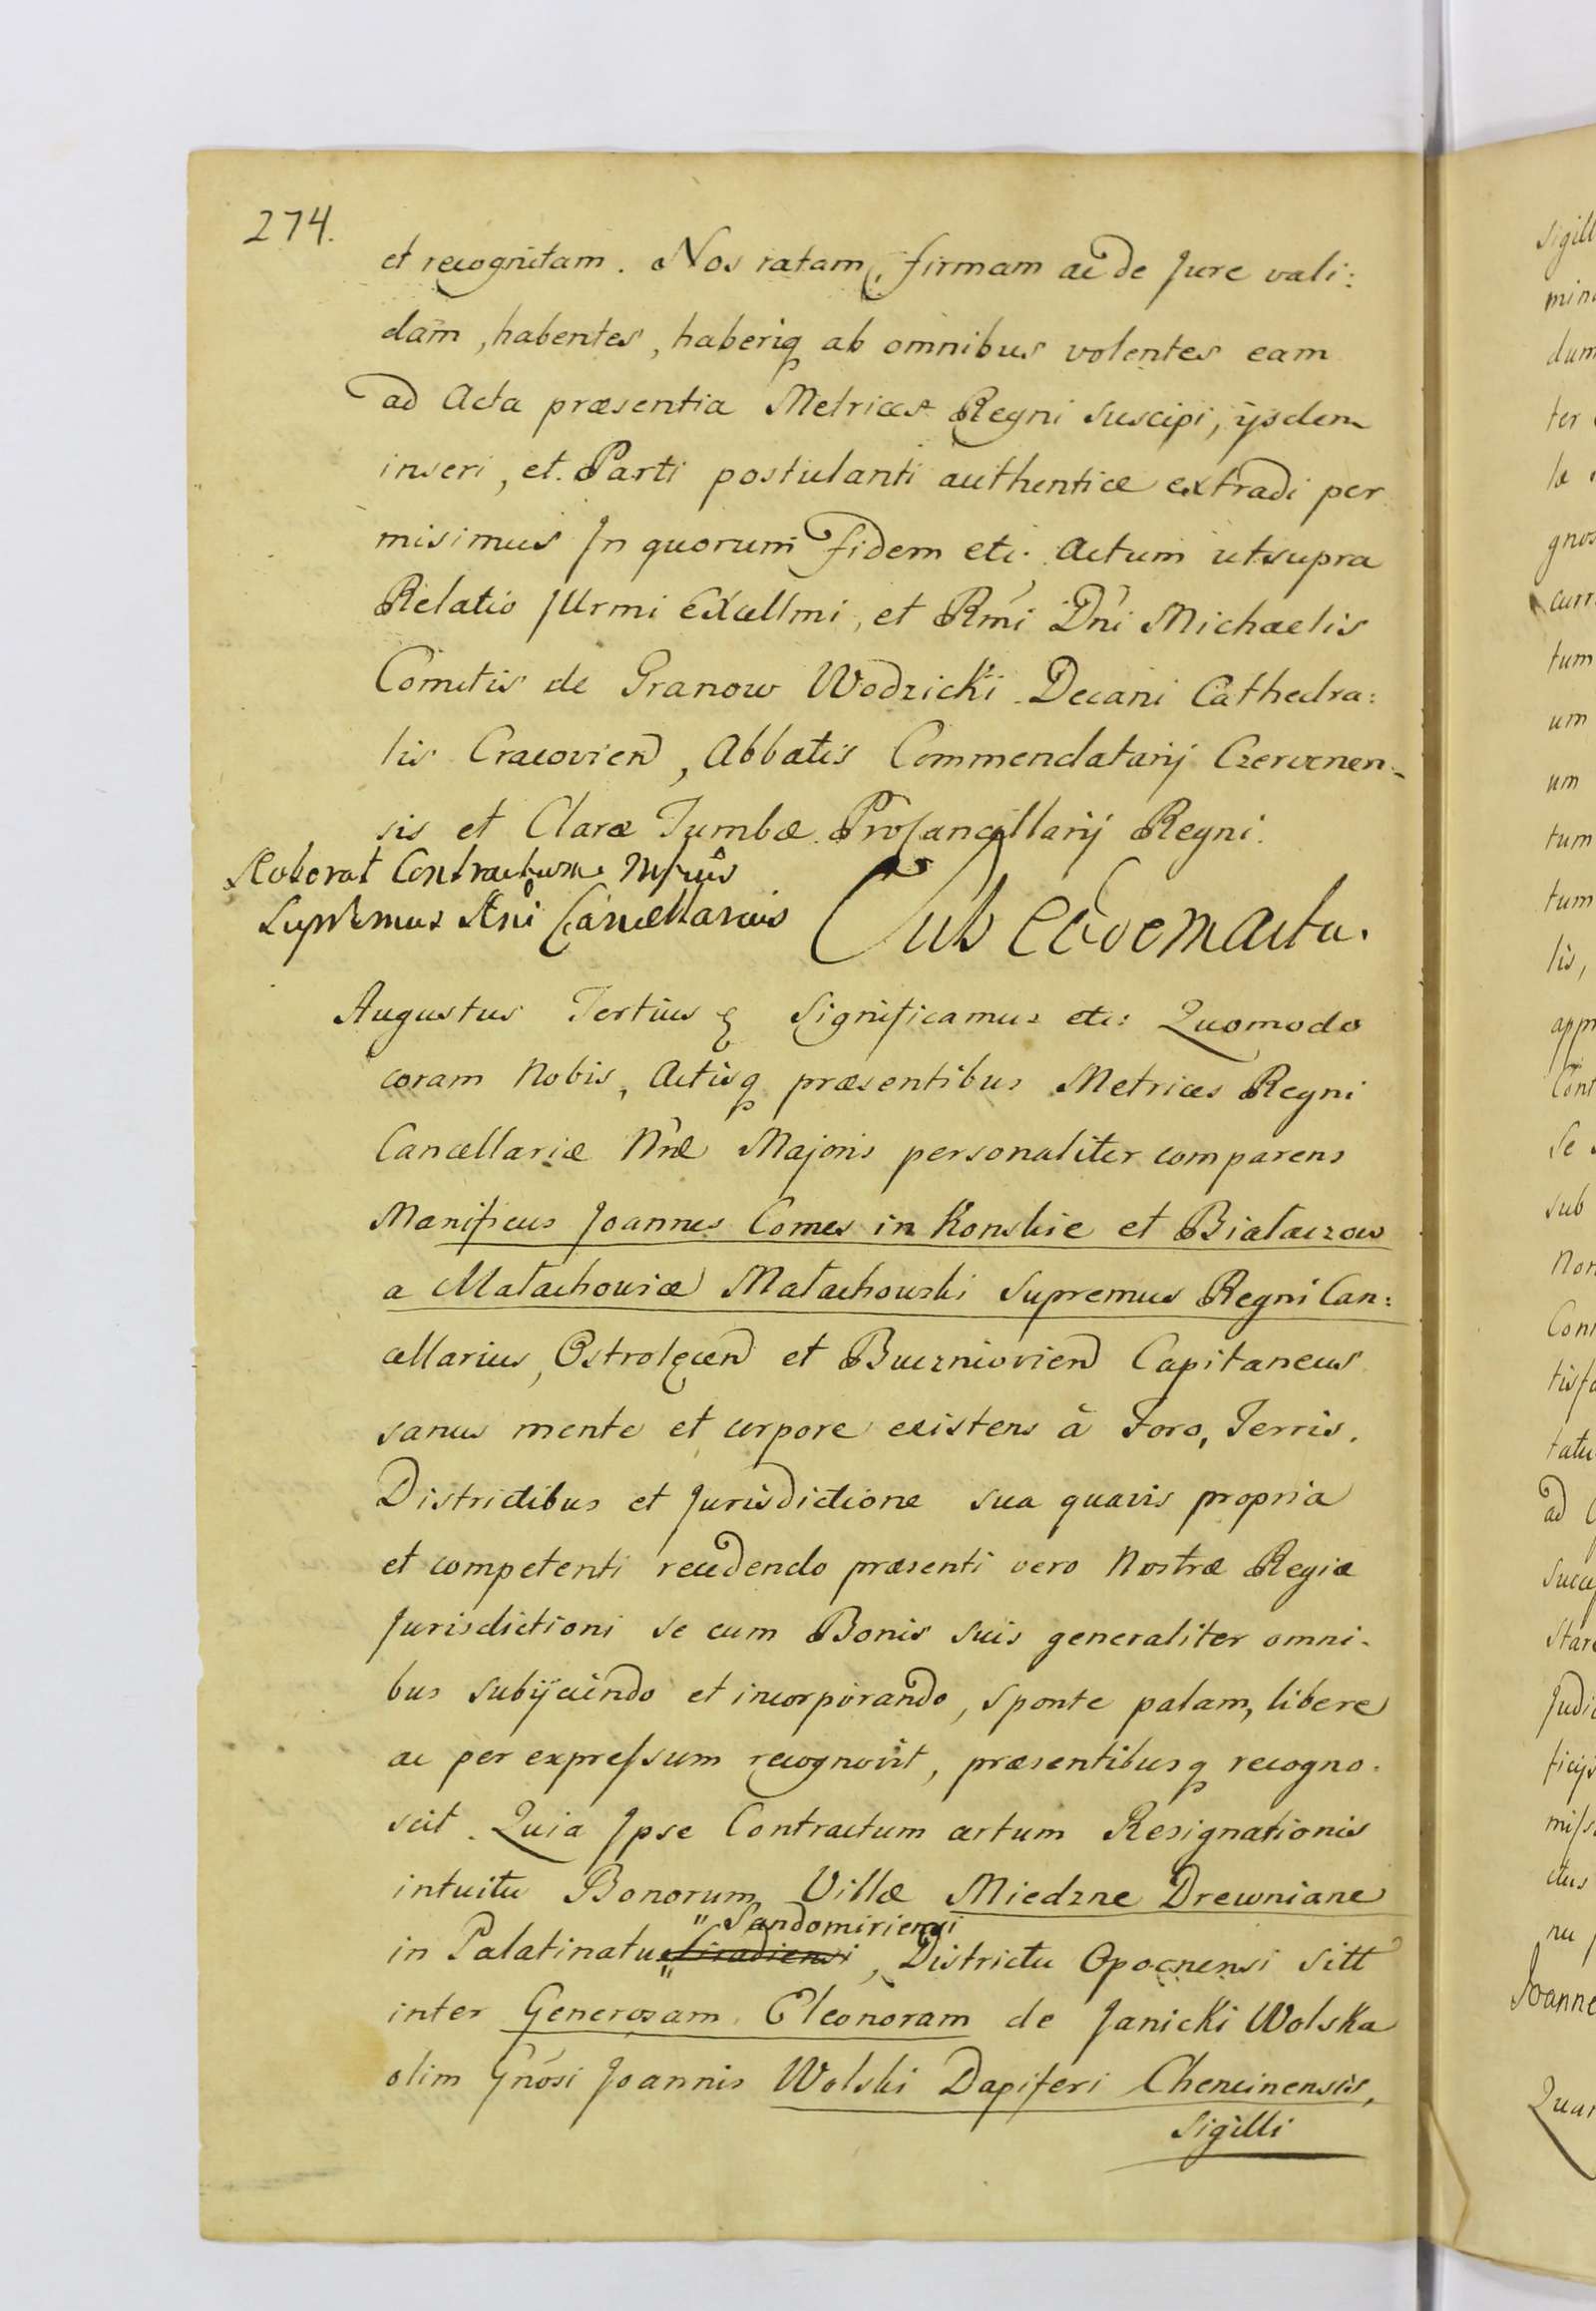 274.
et recognitam. Nos ratam, firmam ac de Jure vali:
dam, habentes, haberiq ab omnibus volentes eam
ad Acta præsentia Metrices Regni suscipi, ijsdem
inseri, et Parti postulanti authentice extradi per
misimus In quorum fidem etc. Actum utsupra
Relatio Jllrmi Excellmi, et Rmi Dni Michaelis
Comitis de Granow Wodzicki Decani Cathedra:
lis Cracovien, Abbatis Commendatarij Czervenen-
sis et Claræ Tumbæ Procancellarij Regni.
Roborat Contractum Mfcus
Supremus Rni Cancellarius
Sub eodem actu.
Augustus Tertius Significamus etc: Quomodo
coram Nobis, Actisq præsentibus Metrices Regni
Cancellariæ Nræ Majoris personaliter comparens
Manificus Joannes Comes in Konskie et Białaczow
a Małachowice Małachowski Supremus Regni Can:
cellarius, Ostrolęcen et Buczniovien Capitaneus
sanus mente et corpore existens à Foro, Terris,
Districtibus et Jurisdictione sua quavis propria
et competenti recedendo præsenti vero Nostræ Regiæ
Jurisdictioni se cum Bonis suis generaliter omni-
bus subijciendo et incorporando, sponte palam, libere
ac per expressum recognovit, præsentibusq recogno-
scit. Quia Ipse Contractum certum Resignationis
intuitu Bonorum Villæ Miedzne Drewniane
" Sandomiriensi
in Palatinatu Siradiensi, Districtu Opocnensi Sitt
inter Generosam Eleonoram de Janicki Wolska
olim Gnosi Joannis Wolski Dapiferi Chencinensis,
Sigilli